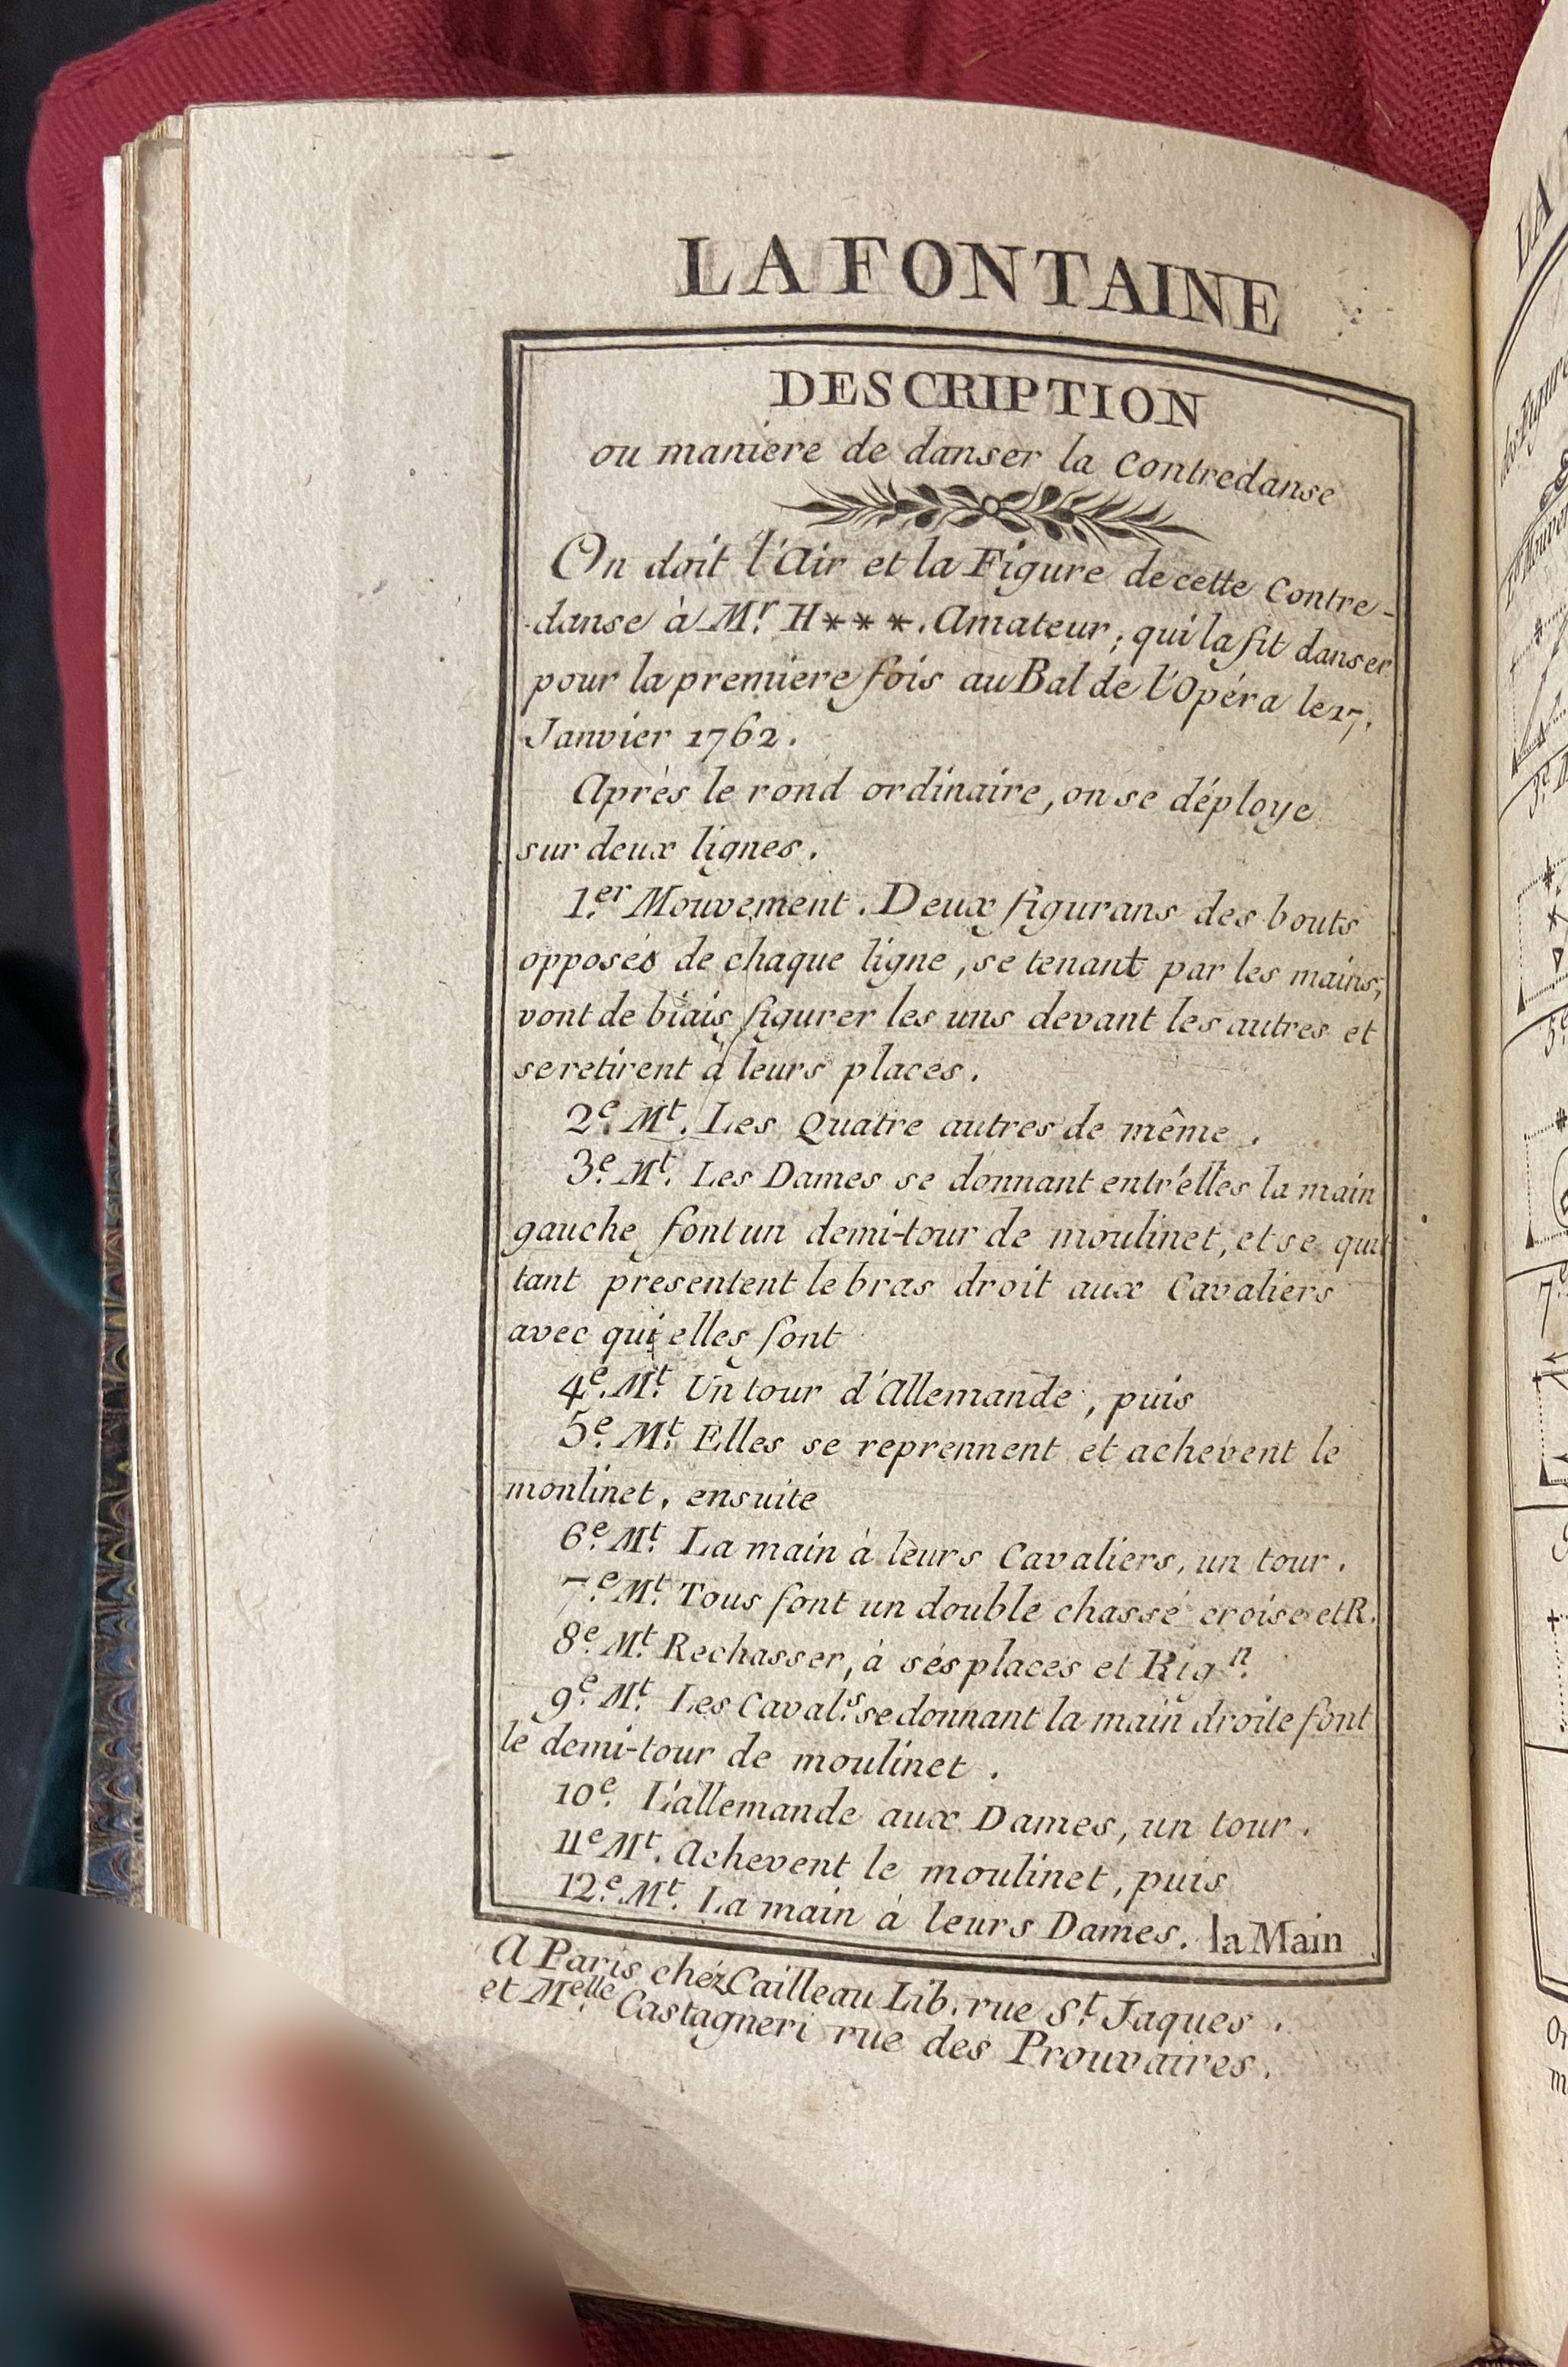 LA FONTAINE
DESCRIPTION
ou maniere de danser la Contredanse
On doit l'Air et la Figure de cette Contre-
danse à Mr. H***. Amateur; qui la fit danser
pour la premiere fois au Bal de l'Opéra le 17.
Janvier 1762.
Après le rond ordinaire, on se déploye
sur deux lignes.
1.er Mouvement. Deux figurans des bouts
opposés de chaque ligne, se tenant par les mains,
vont de biais figurer les uns devant les autres et
se retirent à leurs places.
2.e Mt. Les Quatre autres de même.
3.e Mt. Les Dames se donnant entr'elles la main
gauche font un demi-tour de moulinet, et se quit
tant presentent le bras droit aux Cavaliers
avec qui elles font
4.e Mt. Un tour d'Allemande, puis
5.e Mt. Elles se reprennent et achevent le
monlinet, ensuite
6.e Mt. La main à leurs Cavaliers, un tour.
7.e Mt. Tous font un double chassé croisé et R.
8.e Mt. Rechasser, à sés places et Rign.
9.e Mt. Les Caval.s se donnant la main droite font
le demi-tour de moulinet.
10.e L'allemande aux Dames, un tour.
11e Mt. Achevent le moulinet, puis
12.e Mt. La main à leurs Dames. la Main
A Paris chéz Cailleau Lib. rue St. Jaques.
et M.elle Castagneri rue des Prouvaires.
LA
3.e
5.e
7.e